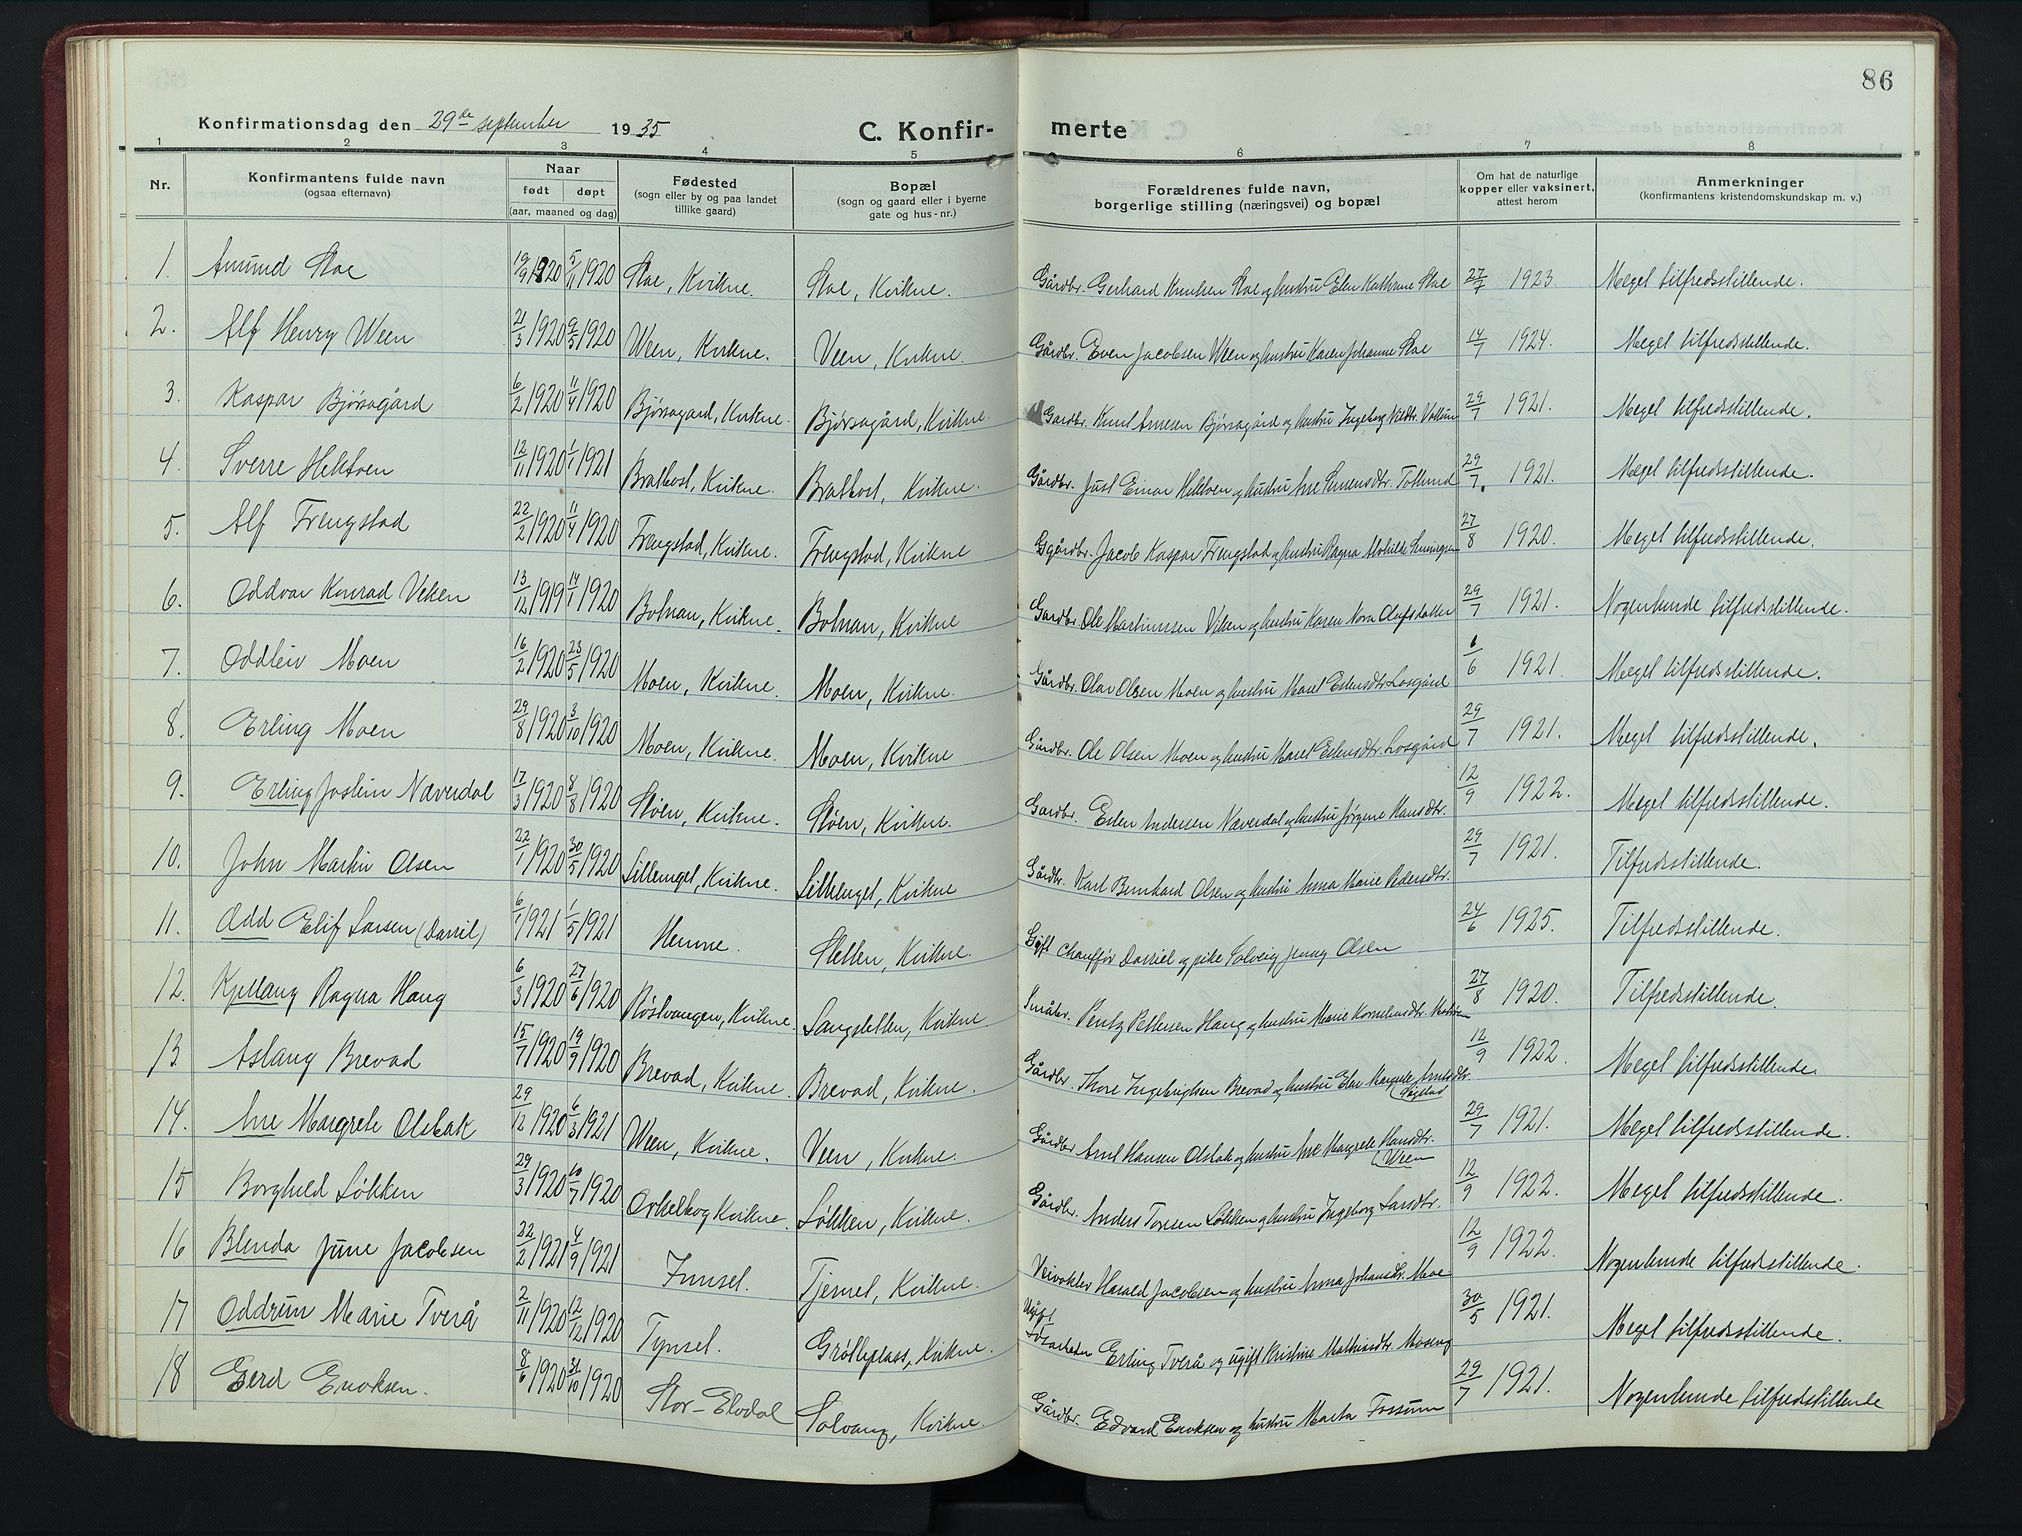 86
Konfirmationsdag den 29de september 1935
C. Konfirmerte
1 2 3 4 5 6 7 8
Nr. Konfirmantens fulde navn (ogsaa efternavn) Naar født døpt (aar, maaned og dag) Fødested (sogn eller by og paa landet tillike gaard) Bopæl (sogn og gaard eller i byerne gate og hus-nr.) Forældrenes fulde navn, borgerlige stilling (næringsvei) og bopæl Om hat de naturlige kopper eller vaksinert, attest herom Anmerkninger (konfirmantens kristendomskundskap m. v.)
1. Amund Stae 19/9 1920 5/11 1920 Stae, Kvikne. Stae, Kvikne. Gårdbr. Gerhard Knutsen Stae og hustru Elen Kathrine Stae 27/7 1923. Meget tilfredsstillende.
2. Alf Henry Ween 21/3 1920 9/5 1920 Ween, Kvikne. Veen, Kvikne. Gårdbr. Even Jacobsen Ween og hustru Karen Johanne Stae 14/7 1924. Meget tilfredsstillende.
3. Kaspar Bjørsagård 6/2 1920 11/4 1920 Bjørsagard, Kvikne. Bjørsagård, Kvikne. Gardbr. Knut Arnesen Bjørsagård og hustru Ingeborg 29/7 1921. Meget tilfredsstillende.
4. Sverre Hektoen 12/11 1920 1/1 1921 Brattost, Kvikne. Brattost, Kvikne. Gårdbr. Just Einar Hektoen og hustru Ane 29/7 1921. Meget tilfredsstillende.
5. Alf Frengstad 22/2 1920 11/4 1920 Frengstad, Kvikne. Frengstad, Kvikne Ggårdbr. Jacob Kaspar Frengstad og hustru Ragna 27/8 1920. Meget tilfredsstillende.
6. Oddvar Konrad Veken 13/12 1919 14/1 1920 Bolnan, Kvikne. Bolnan, Kvikne Gardbr. Ole Martinussen Viken og hustru Karen Nora Olafsdatter 29/7 1921. Nogenlunde tilfredsstillende.
7. Oddleiv Moen 16/2 1920 23/5 1920 Moen, Kvikne. Moen, Kvikne. Gårdbr. Olav Olsen Moen og hustru Maret Estensdtr. Losgård 6/6 1921. Meget tilfredsstillende.
8. Erling Moen 29/8 1920 3/10 1920 Moen, Kvikne. Moen, Kvikne Gårdbr. Ole Olsen Moen og hustru Maret Estensdtr. Losgård 29/7 1921. Meget tilfredsstillende.
9. Erling Jostein Næverdal 17/3 1920 8/8 1920 Støen, Kvikne. Støen, Kvikne. Gardbr. Esten Andersen Næverdal og hustru Jørgine Hansdtr. 12/9 1922. Meget tilfredsstillende.
10. John Martin Olsen 22/1 1920 30/5 1920 Lillenget, Kvikne. Lillenget, Kvikne Gårdbr. Karl Bernhard Olsen og hustru Anna Marie Pedersdtr. 29/7 1921. Tilfredsstillende.
11. Odd Elif Larsen (Daniel) 6/1 1921 1/5 1921 Hemne. Sletten, Kvikne. Gift Chauffør Daniel og pike Solveig Jenny Olsen 24/6 1925. Tilfredsstillende.
12. Kjellaug Ragna Haug 6/3 1920 27/6 1920 Røstvangen, Kvikne. Langsletten, Kvikne. Småbr. Pentz Pettersen Haug og hustru Marie Korneliusdtr. 27/8 1920. Tilfredsstillende.
13. Aslaug Brevad 15/7 1920 19/9 1920 Brevad, Kvikne Brevad, Kvikne. Gårdbr. Thore Ingebrigtsen Brevad og hustru Elen Margrete Arntsdtr. 12/9 1922. Meget tilfredsstillende.
14. Ane Margrete Olsbak 29/12 1920 6/3 1921 Ween, Kvikne. Veen, Kvikne. Gårdbr Arnt Hansen Olsbak og hustru Ane Margrete Hansdtr. (Ween 29/7 1921. Meget tilfredsstillende.
15 Borghild Løkken 29/3 1920 10/7 1920 Orkelkog Kvikne. Løkken, Kvikne. Gårdbr. Anders Torsen Løkken og hustru Ingeborg Larsdtr. 12/9 1922. Meget tilfredsstillende.
16 Blenda June Jacobsen 22/2 1921 4/9 1921 Innset. Tjernet, Kvikne. Veivokter Harald Jacobsen og hustru Anna Johansdtr. Moe 12/9 1922. Nogenlunde tilfredsstillende.
17 Oddrun Marie Tverå 2/11 1920 12/12 1920 Tynset. Grøtteplass, Kvikne. Ugift Løsarbeider Erling Tverå og ugift Kristine Mathiasdtr. Moseng 30/5 1921. Meget tilfredsstillende.
18 Gerd Enoksen. 8/6 1920 31/10 1920 Stor-Elvdal Solvang, Kvikne. Gårdbr. Edvard Enoksen og hustru Marta Fossum 29/7 1921. Nogenlunde tilfredsstillende